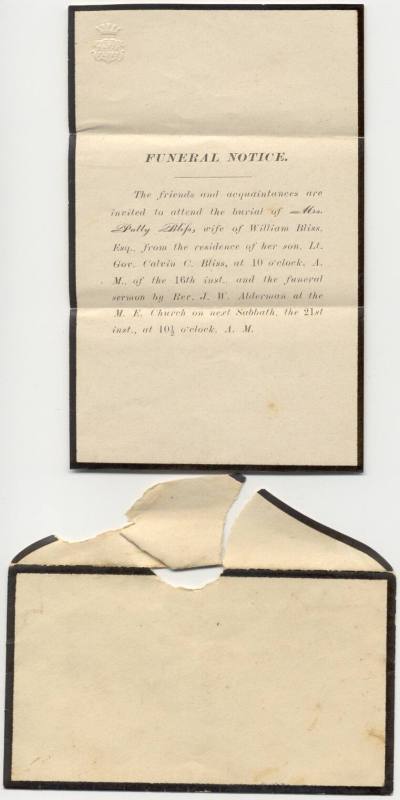 FUNERAL NOTICE.
The friends and acquaintances are
invited to attend the burial of Mrs.
Polly Bliss, wife of William Bliss,
Esq., from the residence of her son, Lt.
Gov. Calvin C. Bliss, at 10 o'clock, A.
M., of the 16th inst., and the funeral
sermon by Rev. J. W. Alderman at the
M. E. Church on next Sabbath, the 21st
inst., at 10½ o'clock, A. M.